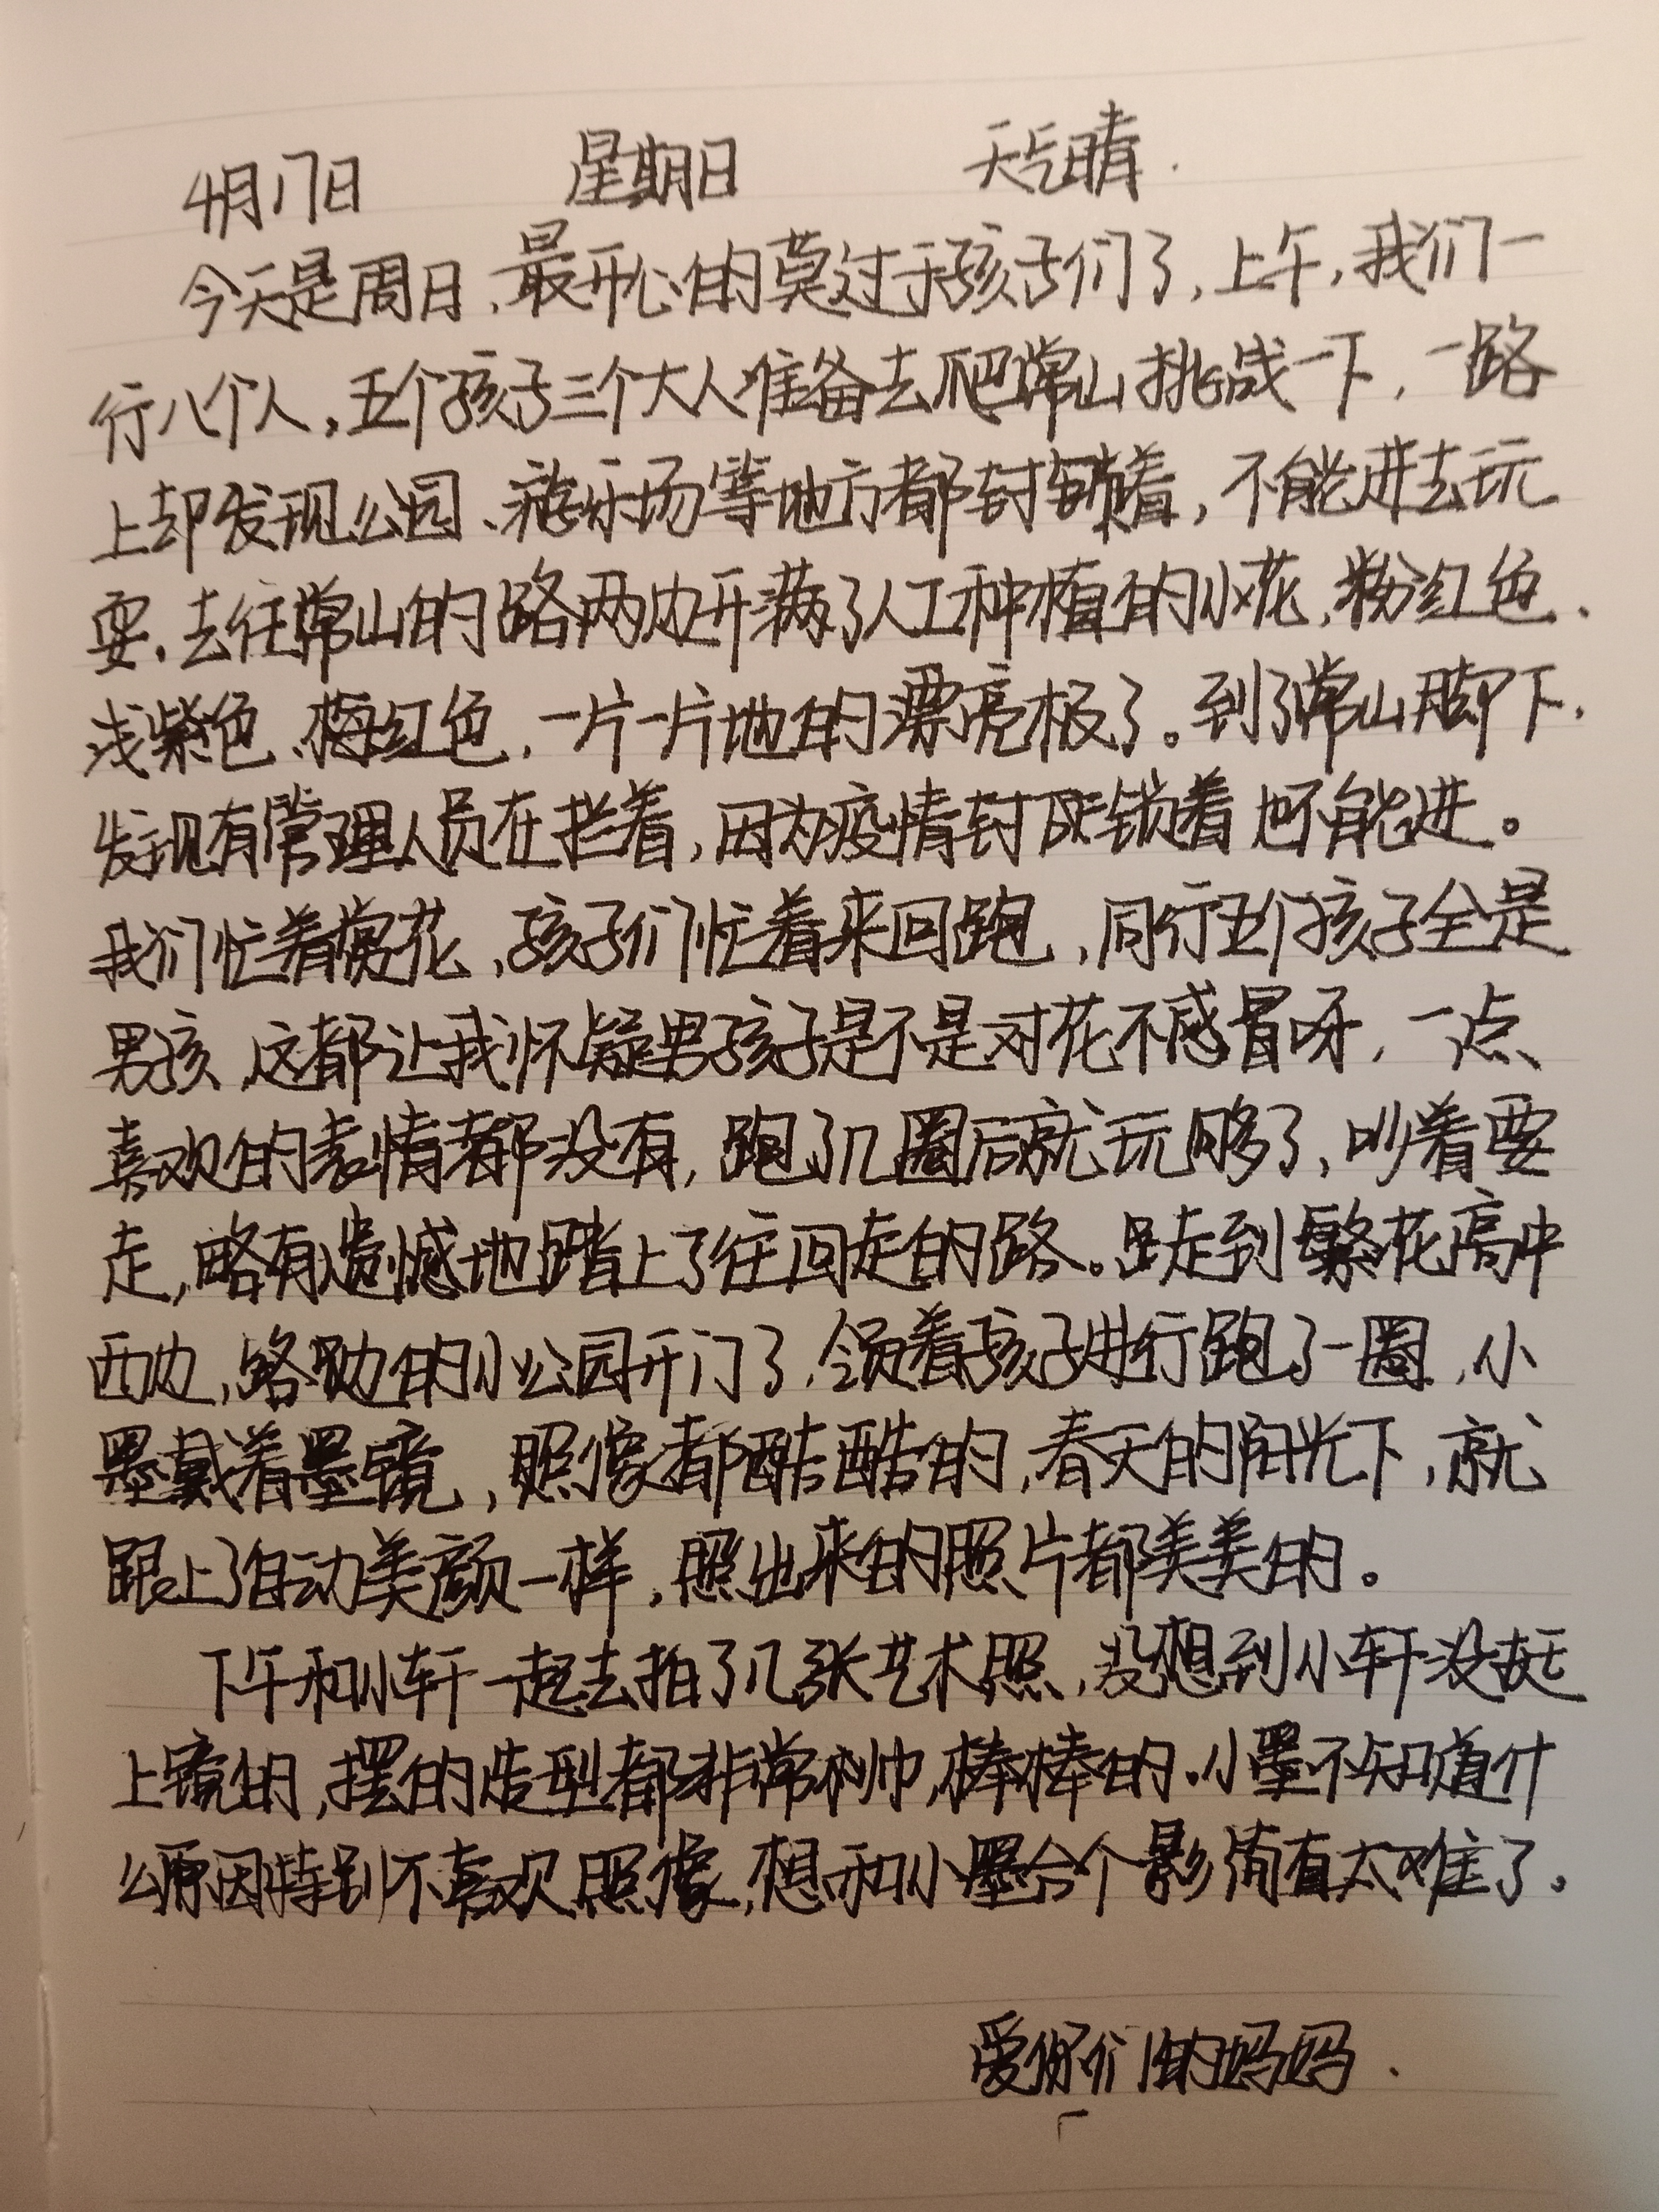 4月17日 星期日 天气晴.
今天是周日、最开心的莫过于孩子们了,上午,我们一
行八个人,五个孩子三个大人准备去爬常山挑战一下,一路
上却发现公园、游乐场等地方都封锁着,不能进去玩
耍.去往常山的路两边开满了人工种植的小花,粉红色、
浅紫色、梅红色,一片一片地的漂亮极了。到了常山脚下,
发现有管理人员在拦着,因为疫情封锁着也不能进。
我们忙着赏花,孩子们忙着来回跑,同行五个孩子全是
男孩,这都让我怀疑男孩子是不是对花不感冒呀,一点
喜欢的表情都没有,跑了几圈后就玩够了,吵着要
走,略有遗憾地踏上了往回走的路。走到繁花高中
西边,路边的小公园开门了,领着孩子进行跑了一圈,小
墨戴着墨镜,照像都酷酷的,春天的阳光下,就
跟上了自动美颜一样,照出来的照片都美美的。
下午和小轩一起去拍了几张艺术照,没想到小轩没挺
上镜的,摆的造型都非常帅,棒棒的.小墨不知道什
么原因特别不喜欢照像,想和小墨合个影简直太难了。
爱你们的妈妈.